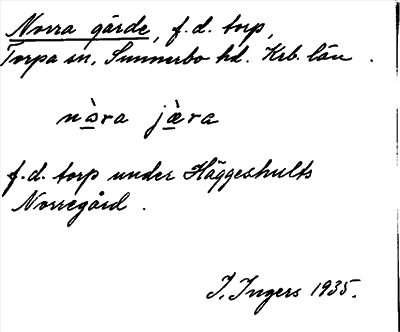 Norra gärde, f.d. torp,
Torpa sn, Sunnerbo hd. Krb. län.
nɔ̀ra jæ̀ra
f.d. torp under Häggeshults
Norregård.
I. Ingers 1935.